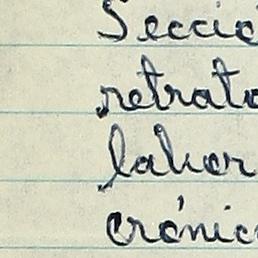 Secció
retrato
labor
crónic